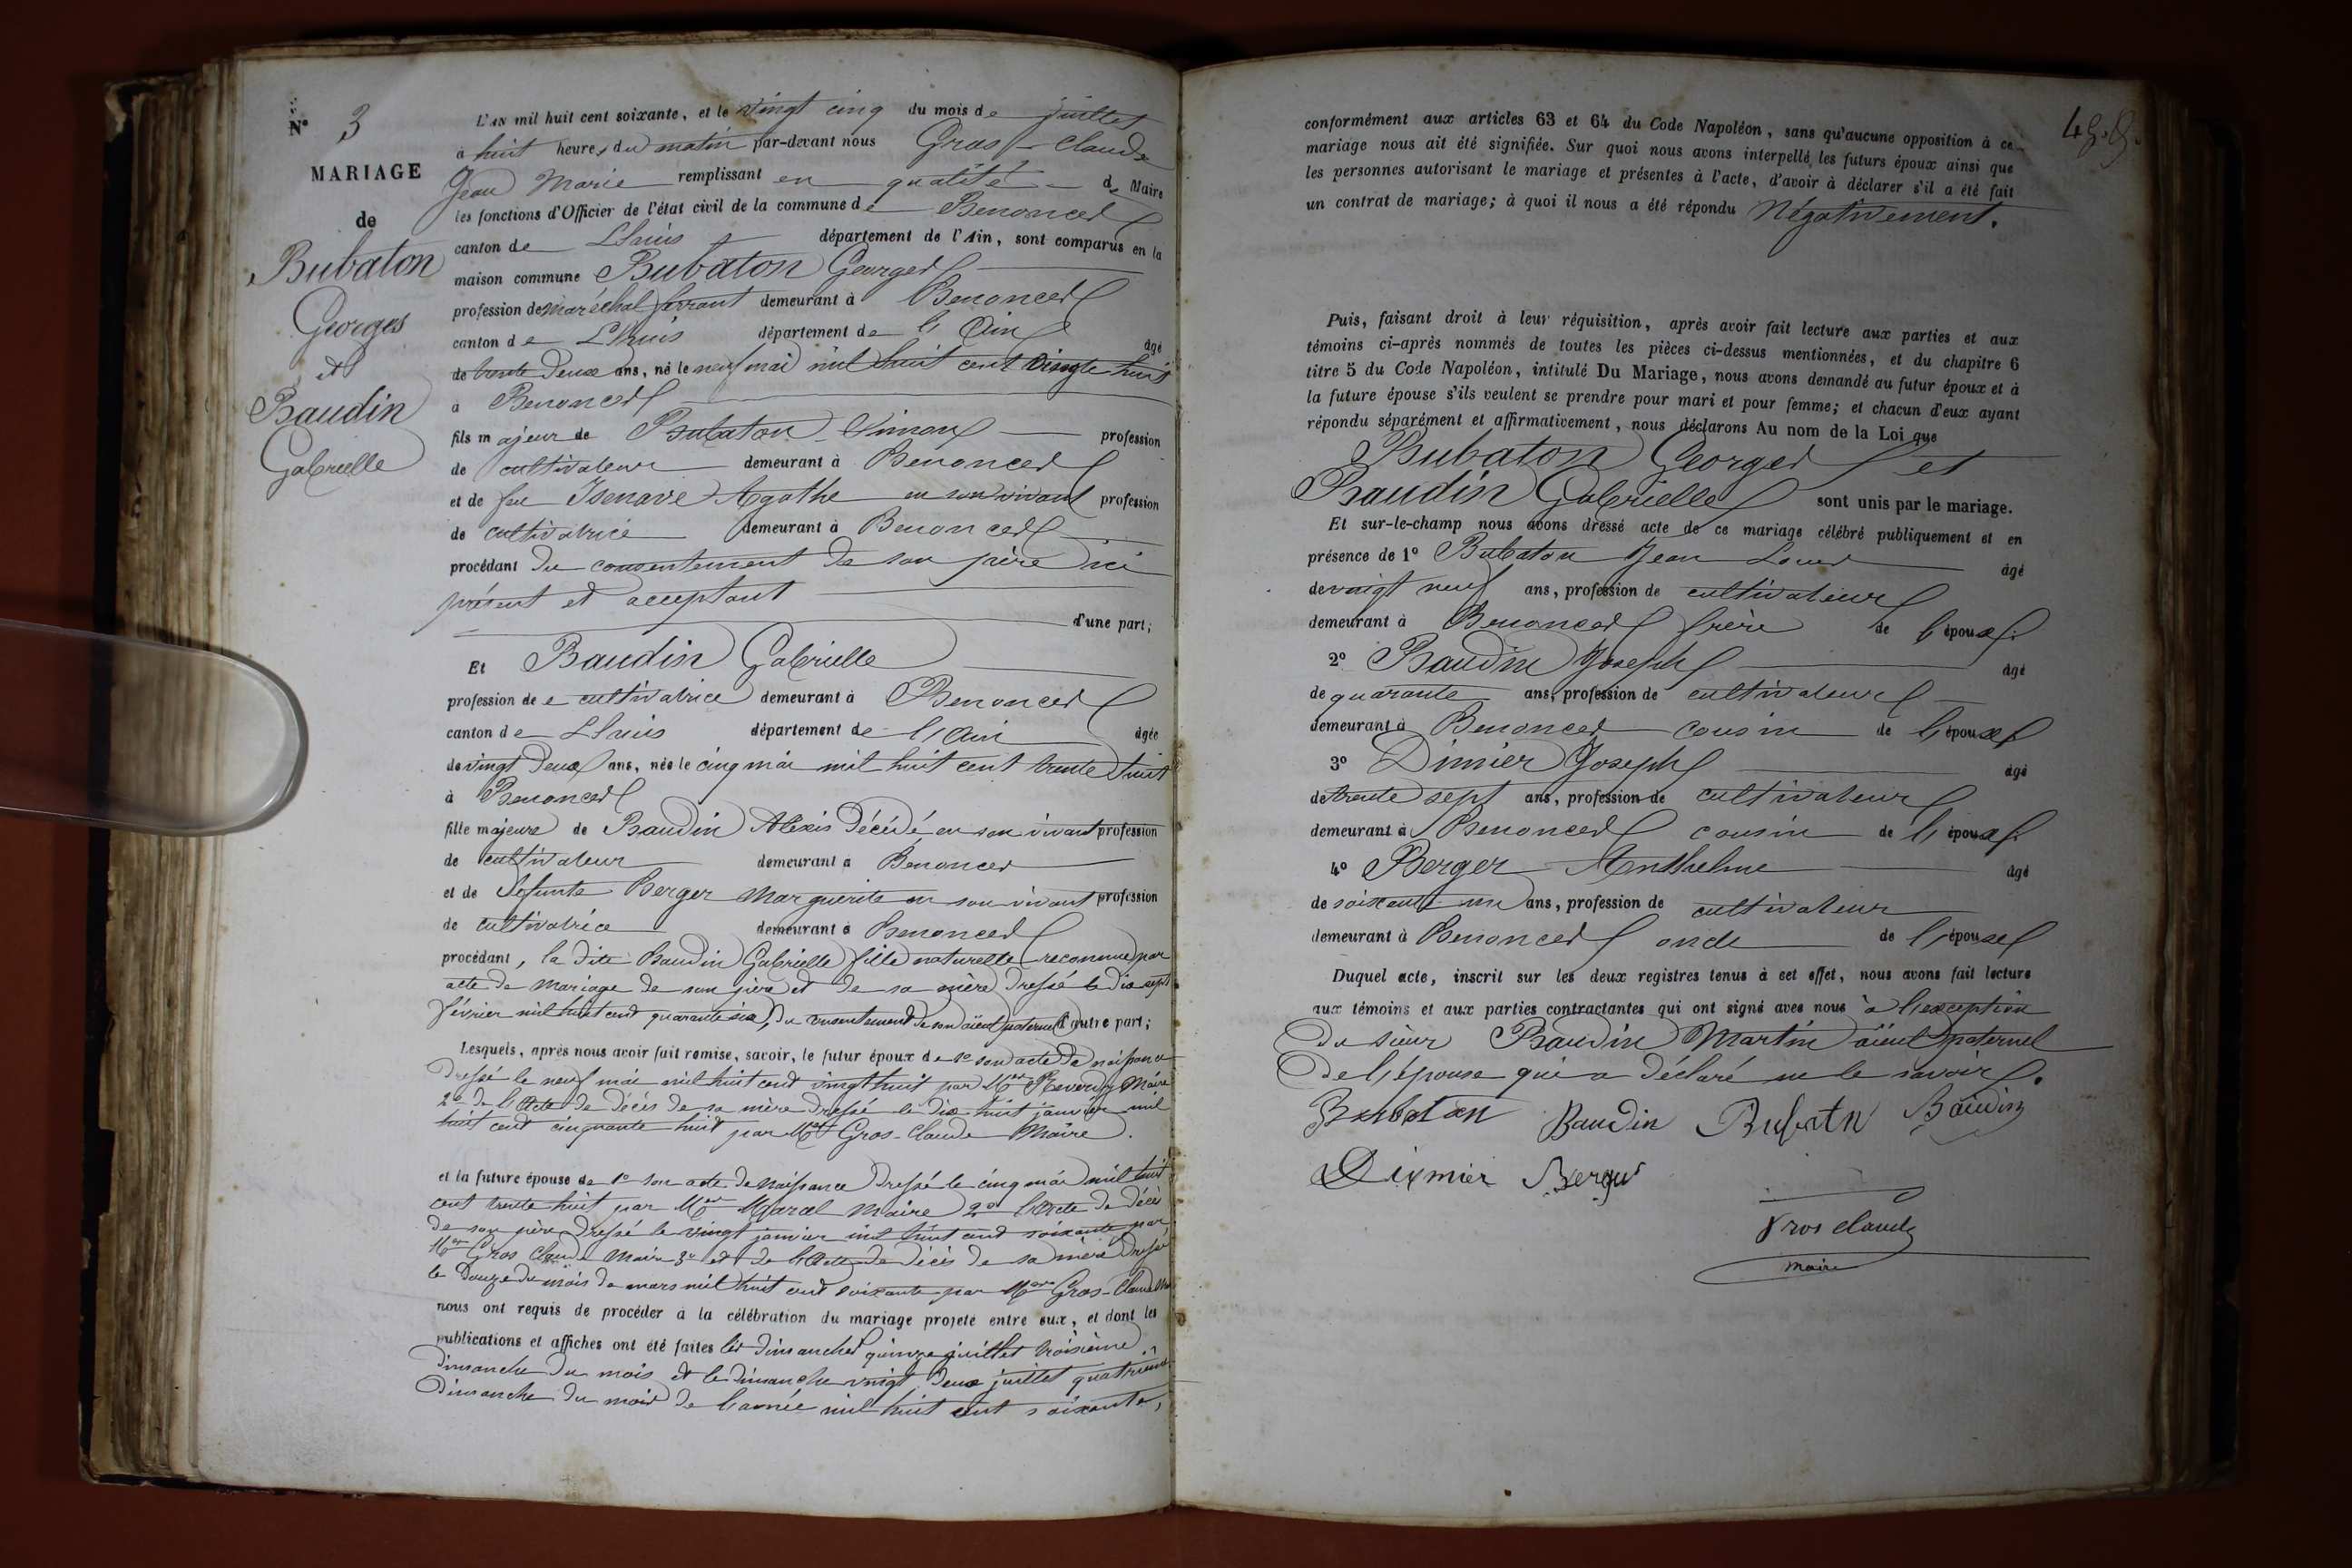 N° 3
MARIAGE
de
Bubaton
Georges
et
Baudin
Gabrielle
L'AN mil huit cent soixante, et le vingt cinq du mois de juillet
à huit heures du matin par-devant nous Gros-Claude
Jean Marie remplissant en qualité de Maire
les fonctions d'Officier de l'état civil de la commune de Benonces
canton de Lhuis département de l'Ain, sont comparus en la
maison commune Bubaton Georges
profession de maréchal ferrant demeurant à Benonces
canton de Lhuis département de l'Ain âgé
de trente deux ans, né le neuf mai mil huit cent vingt huit
à Benonces
fils majeur de Bubaton Simon profession
de cultivateur demeurant à Benonces
et de feu Isenave Agathe en son vivant profession
de cultivatrice demeurant à Benonces
procédant du consentement de son père ici
présent et acceptant
d'une part;
Et Baudin Gabrielle
profession de cultivatrice demeurant à Benonces
canton de Lhuis département de l'Ain âgée
de vingt deux ans, née le cinq mai mil huit cent trente huit
à Benonces
fille majeure de Baudin Alexis décédé en son vivant profession
de cultivateur demeurant à Benonces
et de défunte Berger Marguerite en son vivant profession
de cultivatrice demeurant à Benonces
procédant, la dite Baudin Gabrielle fille naturelle reconnue par
acte de mariage de son père et de sa mère dressé le dix sept
février mil huit cent quarante six, du consentement de son aïeul paternel d'autre part;
Lesquels, après nous avoir fait remise, savoir, le futur époux de 1° son acte de naissance
dressé le neuf mai mil huit cent vingt huit par Mer Reverdy Maire
2° de l'acte de décès de sa mère dressé le dix huit janvier mil
huit cent cinquante huit par Mer Gros-Claude Maire.
et la future épouse de 1° son acte de naissance dressé le cinq mai mil huit
cent trente huit par Mer Marcel Maire 2° l'acte de décès
de son père dressé le vingt janvier mil huit cent soixante par
Mer Gros Claude Maire 3° et de l'acte de décès de sa mère dressé
le douze du mois de mars mil huit cent soixante par Mer Gros-Claude
nous ont requis de procéder à la célébration du mariage projeté entre eux, et dont les
publications et affiches ont été faites les dimanches quinze juillet troisième
dimanche du mois et le dimanche vingt deux juillet quatrième
dimanche du mois de l'année mil huit cent soixante,
conformément aux articles 63 et 64 du Code Napoléon, sans qu'aucune opposition à ce
mariage nous ait été signifiée. Sur quoi nous avons interpellé les futurs époux ainsi que
les personnes autorisant le mariage et présentes à l'acte, d'avoir à déclarer s'il a été fait
un contrat de mariage; à quoi il nous a été répondu Négativement.
Puis, faisant droit à leur réquisition, après avoir fait lecture aux parties et aux
témoins ci-après nommés de toutes les pièces ci-dessus mentionnées, et du chapitre 6
titre 5 du Code Napoléon, intitulé Du Mariage, nous avons demandé au futur époux et à
la future épouse s'ils veulent se prendre pour mari et pour femme; et chacun d'eux ayant
répondu séparément et affirmativement, nous déclarons Au nom de la Loi que
Bubaton Georges et
Baudin Gabrielle sont unis par le mariage.
Et sur-le-champ nous avons dressé acte de ce mariage célébré publiquement et en
présence de 1° Bubaton Jean Louis âgé
de vingt neuf ans, profession de cultivateur
demeurant à Benonces frère de l'époux.
2° Baudin Joseph âgé
de quarante ans, profession de cultivateur
demeurant à Benonces cousin de l'époux
3° Dimier Joseph âgé
de trente sept ans, profession de cultivateur
demeurant à Benonces cousin de l'époux.
4° Berger Anthelme âgé
de soixante un ans, profession de cultivateur
demeurant à Benonces oncle de l'épouse
Duquel acte, inscrit sur les deux registres tenus à cet effet, nous avons fait lecture
aux témoins et aux parties contractantes qui ont signé avec nous à l'exception
du sieur Baudin Martin aïeul paternel
de l'épouse qui a déclaré ne le savoir.
Bubaton Baudin Bubatn Baudin
Dixmier Berger
Gros claude
maire